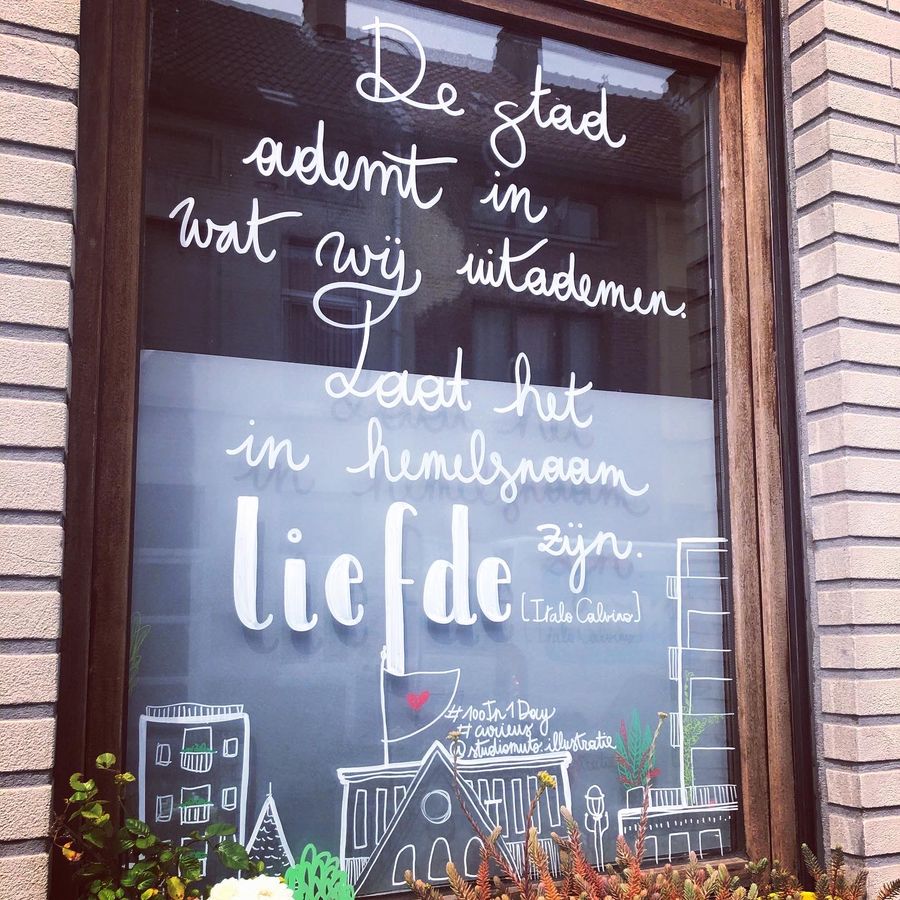 De stad
ademt in
wat wij uitademen.
Laat het
in hemelsnaam
liefde zijn.
[Italo Calvino]
#100In1Day
#avieus
@studiomuto.illustratie